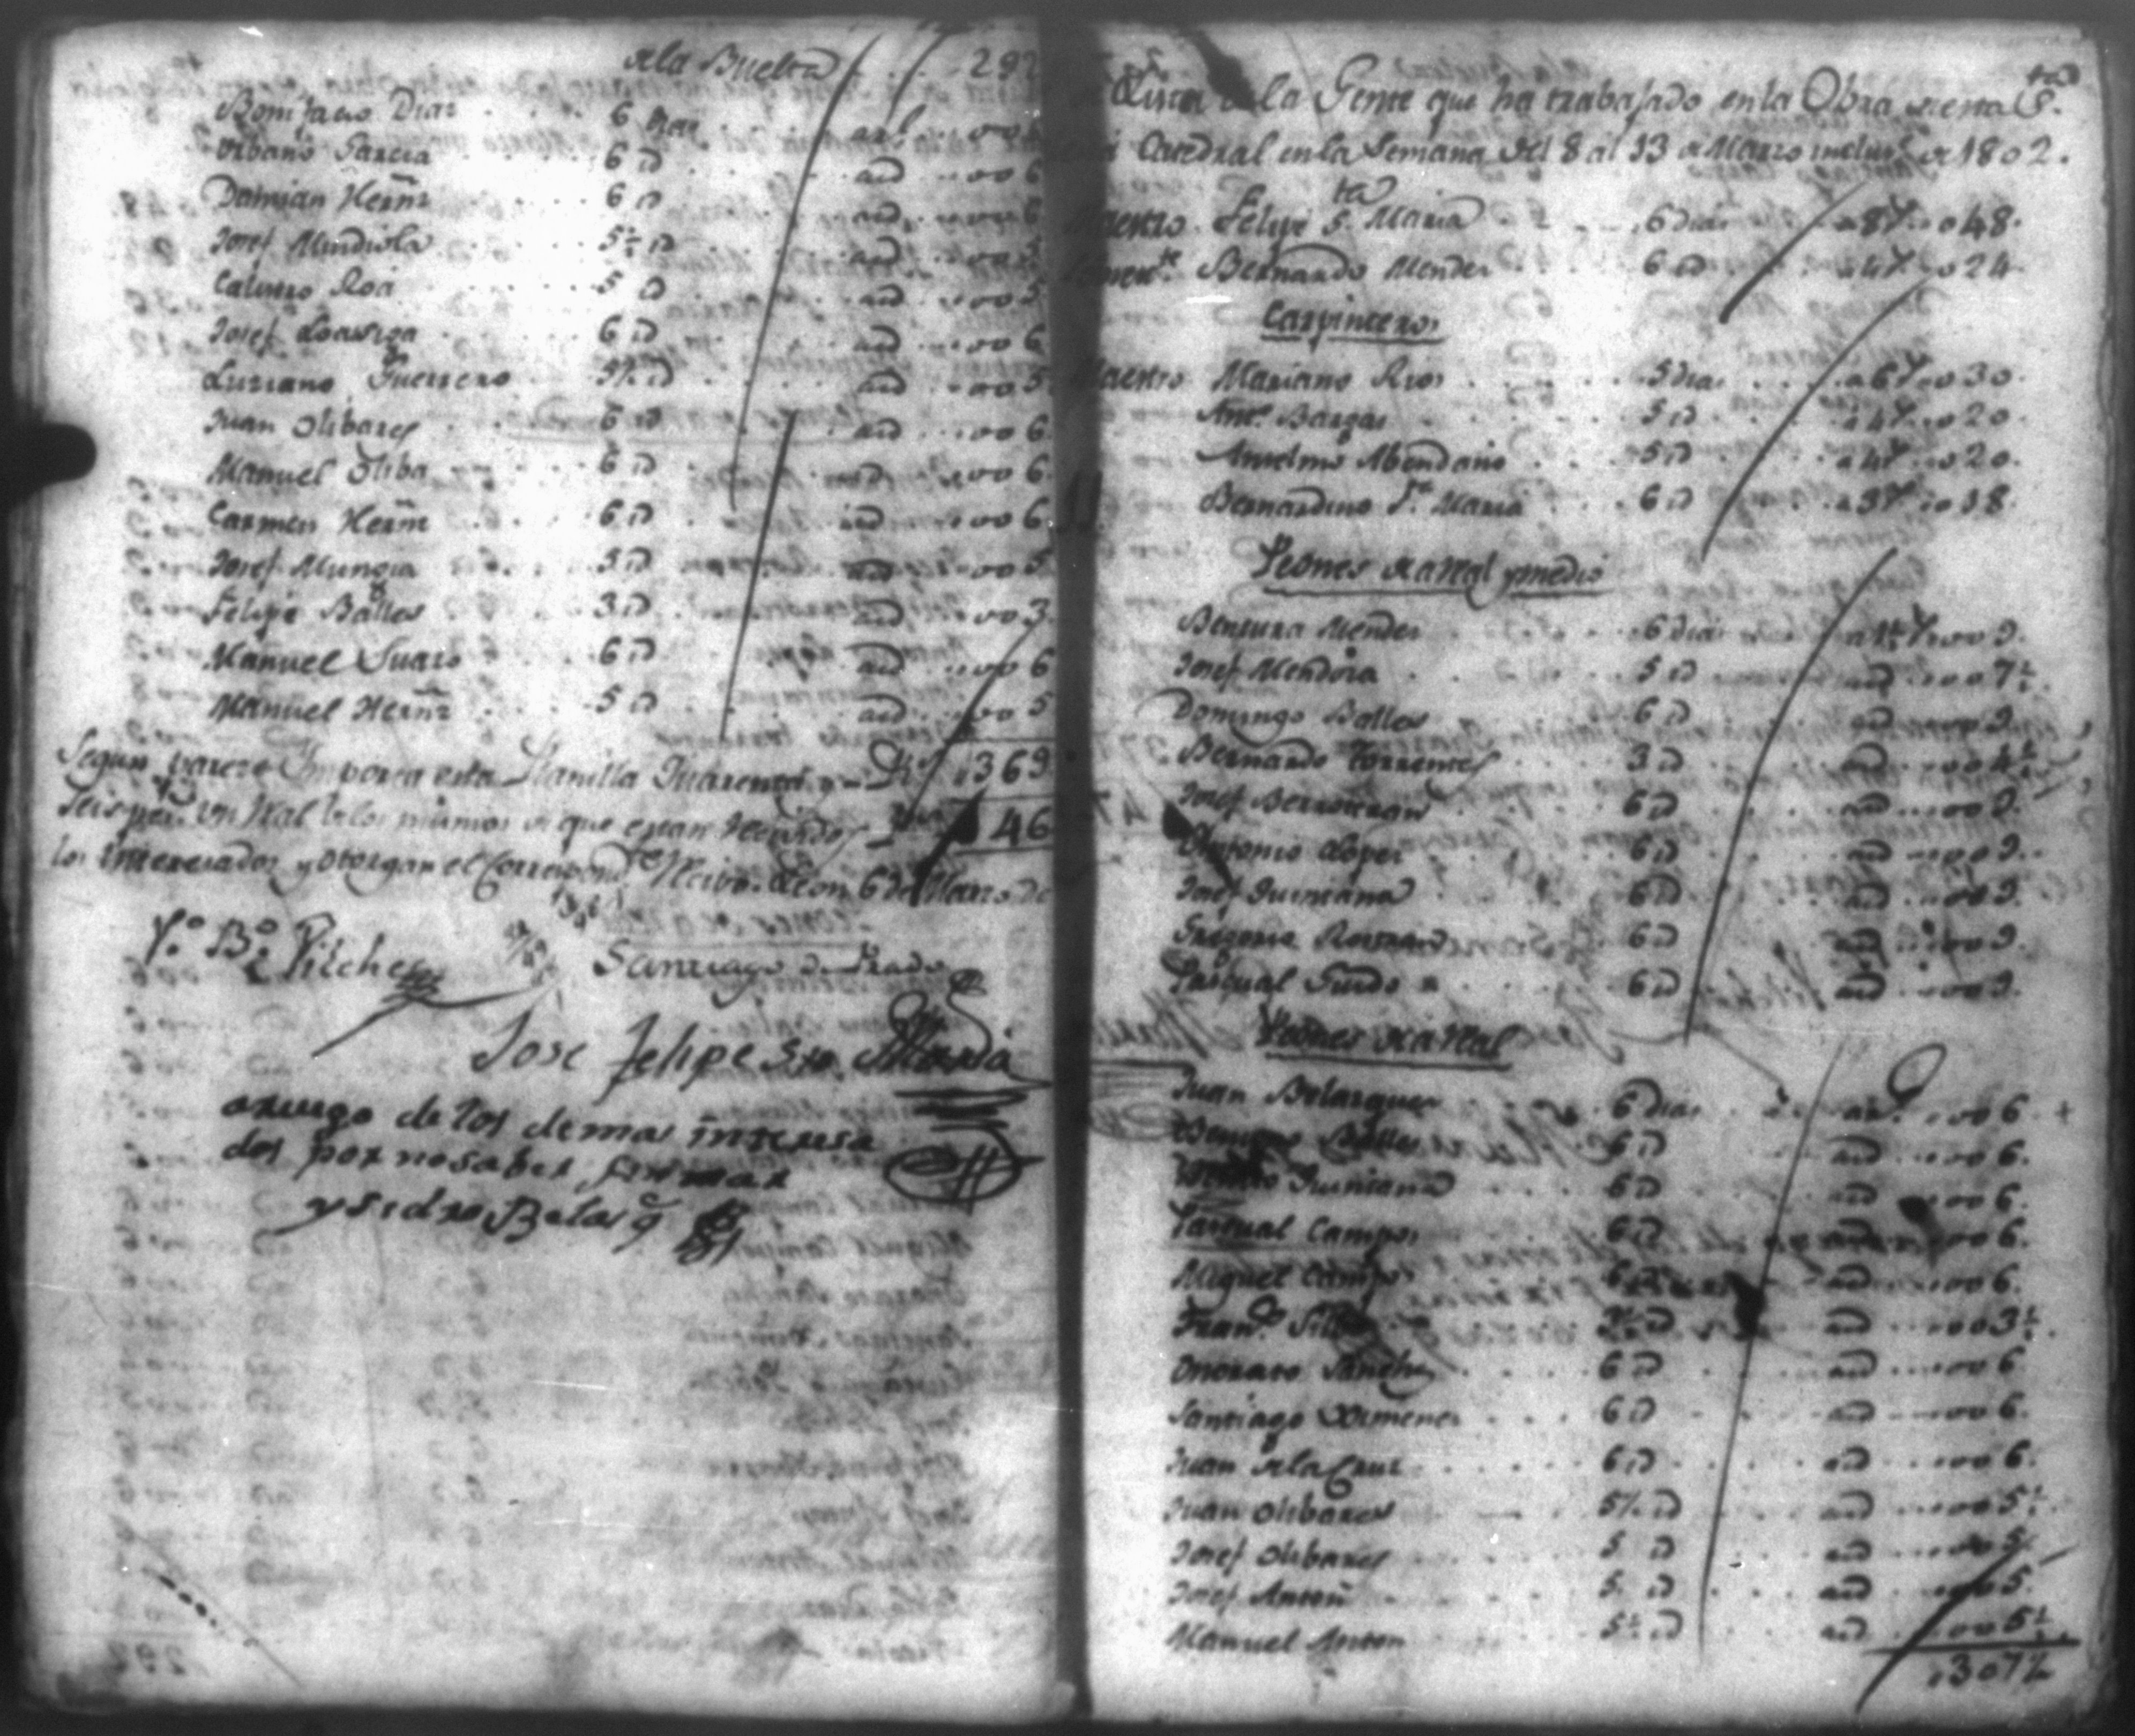 de la Buelta . . . 297
Bonifacio Diaz . . . 6 dias . . . a 1 r . . . 006
Urbano Garcia . . . 6 id . . . id . . . 006
Damian Hernz . . . 6 id . . . id . . . 006
Josef Mendiola . . . 5½ id . . . id . . . 005
Calistro Roa . . . 5 id . . . id . . . 005
Josef Loasiga . . . 6 id . . . id . . . 006
Luziano Guerrero . . . 5½ id . . . id . . . 005
Juan Olibares . . . 6 id . . . id . . . 006
Manuel Oliba . . . 6 id . . . id . . . 006
Carmen Hernz . . . 6 id . . . id . . . 006
Josef Munguia . . . 5 id . . . id . . . 005
Felipe Balles . . . 3 id . . . id . . . 003
Manuel Suazo . . . 6 id . . . id . . . 006
Manuel Hernz . . . 5 id . . . id . . . 005
Segun parece Importa esta Planilla Quarenta y . . . Rs 369
seis ps. un Real los mismos de que estan Recividos . . . 46
los interesados y otorgan el Correspondte Recivo. Leon 6 de Marzo de
V.o B.o Pilches
Santiago de Prado
Jose Felipe Sta Maria
aruego de los demas interesa
dos por no saber firmar
ysidro Belasq
Lista de la Gente que ha trabajado en la Obra de esta Sta
Catedral en la Semana del 8 al 13 de Marzo inclusе de 1802.
Maestro. Felipe S.ta Maria . . . 6 dias . . . a 8 r . . 048.
Bernardo Mendez . . . 6 id . . . a 4 r . . 024
Carpinteros
Maestro Mariano Rios . . . 5 dias . . . a 6 r . . 030.
Anto. Bargas . . . 5 id . . . a 4 r . . 020.
Anselmo Abendaño . . . 5 id . . . a 4 r . . 020.
Bernardino S.ta Maria . . . 6 id . . . a 3 r . . 018.
Peones de a Real y medio
Bentura Mendez . . . 6 dias . . . a 1½ r . . 009.
Josef Mendoza . . . 5 id . . . id . . . 007½
Domingo Balles . . . 6 id . . . id . . . 009.
Bernardo Torrentes . . . 3 id . . . id . . . 004½
Josef Berroteran . . . 6 id . . . id . . . 009.
Antonio Lopez . . . 6 id . . . id . . . 009.
Josef Quintana . . . 6 id . . . id . . . 009.
Gregorio Roman . . . 6 id . . . id . . . 009.
Pasqual Guido . . . 6 id . . . id . . . 009.
Peones de a Real
Juan Belazquez . . . 6 dias . . . a 1 . . . 006.
Balles . . . 6 id . . . id . . . 006.
Quintana . . . 6 id . . . id . . . 006.
Pasqual Campos . . . 6 id . . . id . . . 006.
Miguel Campos . . . 6 id . . . id . . . 006.
Fran.co Silba . . . 3½ id . . . id . . . 003½.
Onorato Sanchz . . . 6 id . . . id . . . 006.
Santiago Ximenez . . . 6 id . . . id . . . 006.
Juan de la Cruz . . . 6 id . . . id . . . 006.
Juan Olibares . . . 5½ id . . . id . . . 005½.
Josef Olibares . . . 5 id . . . id . . . 005.
Josef Anton . . . 5 id . . . id . . . 005.
Manuel Anton . . . 5½ id . . . id . . . 005½.
307½